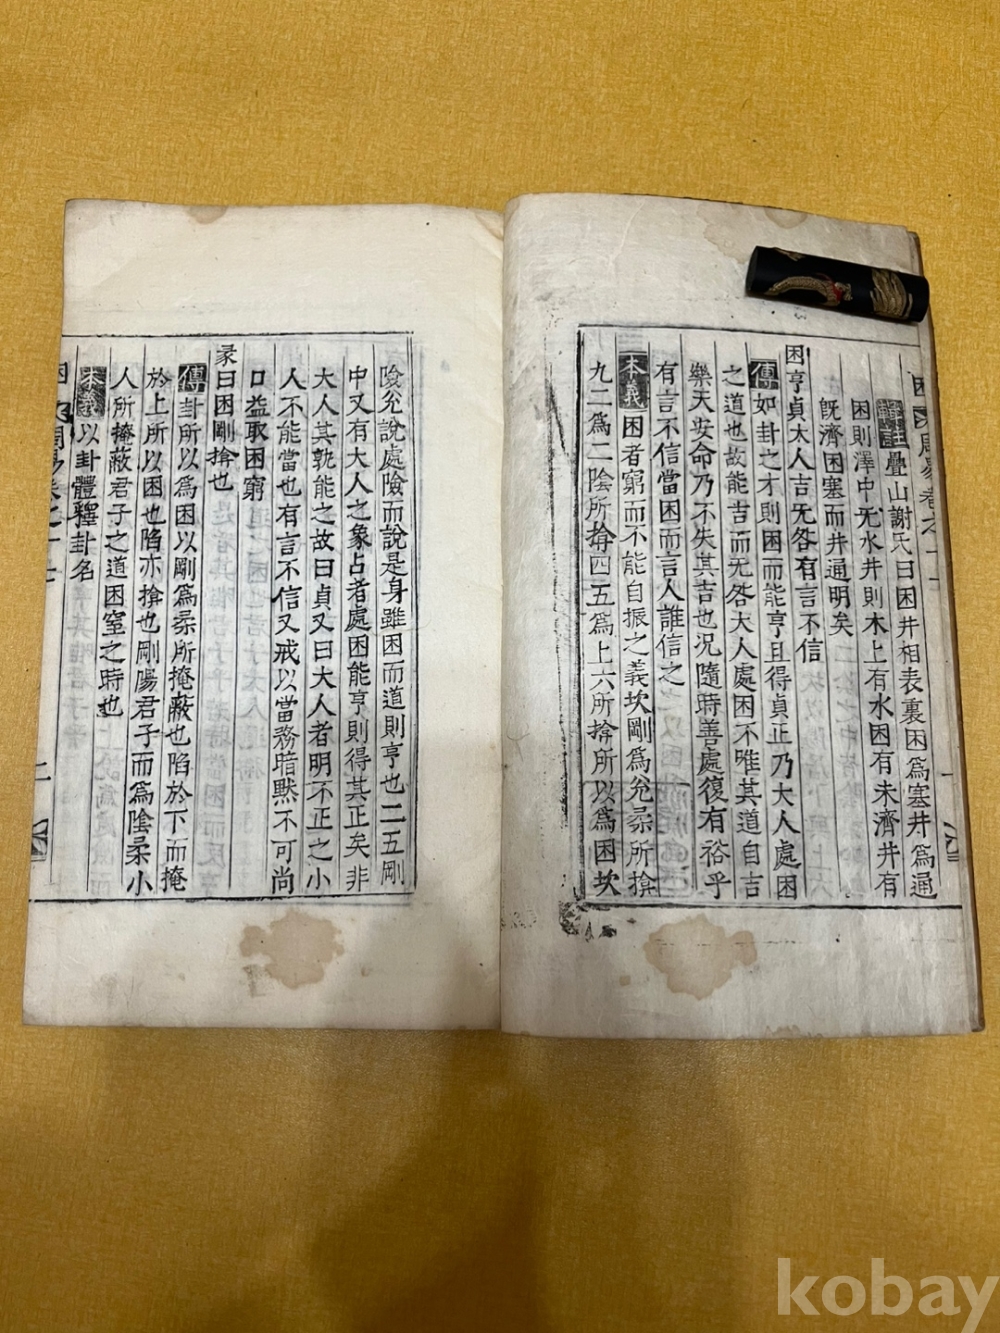 疊山謝氏曰困井相表裏困爲塞井爲通
困則澤中无水井則木上有水困有未濟井有
旣濟困塞而井通明矣
困亨貞大人吉无咎有言不信
傳如卦之才則困而能亨且得貞正乃大人處困
之道也故能吉而无咎大人處困不唯其道自吉
樂天安命乃不失其吉也况隨時善處復有裕乎
有言不信當困而言人誰信之
本義困者窮而不能自振之義坎剛爲兌柔所揜
九二爲二陰所揜四五爲上六所揜所以爲困坎
險兌說處險而說是身雖困而道則亨也二五剛
中又有大人之象占者處困能亨則得其正矣非
大人其孰能之故曰貞又曰大人者明不正之小
人不能當也有言不信又戒以當務暗黙不可尚
口益取困窮
彖曰困剛揜也
傳卦所以爲困以剛爲柔所掩蔽也陷於下而掩
於上所以困也陷亦揜也剛陽君子而爲陰柔小
人所掩蔽君子之道困窒之時也
本義以卦體釋卦名
困
二
kobay